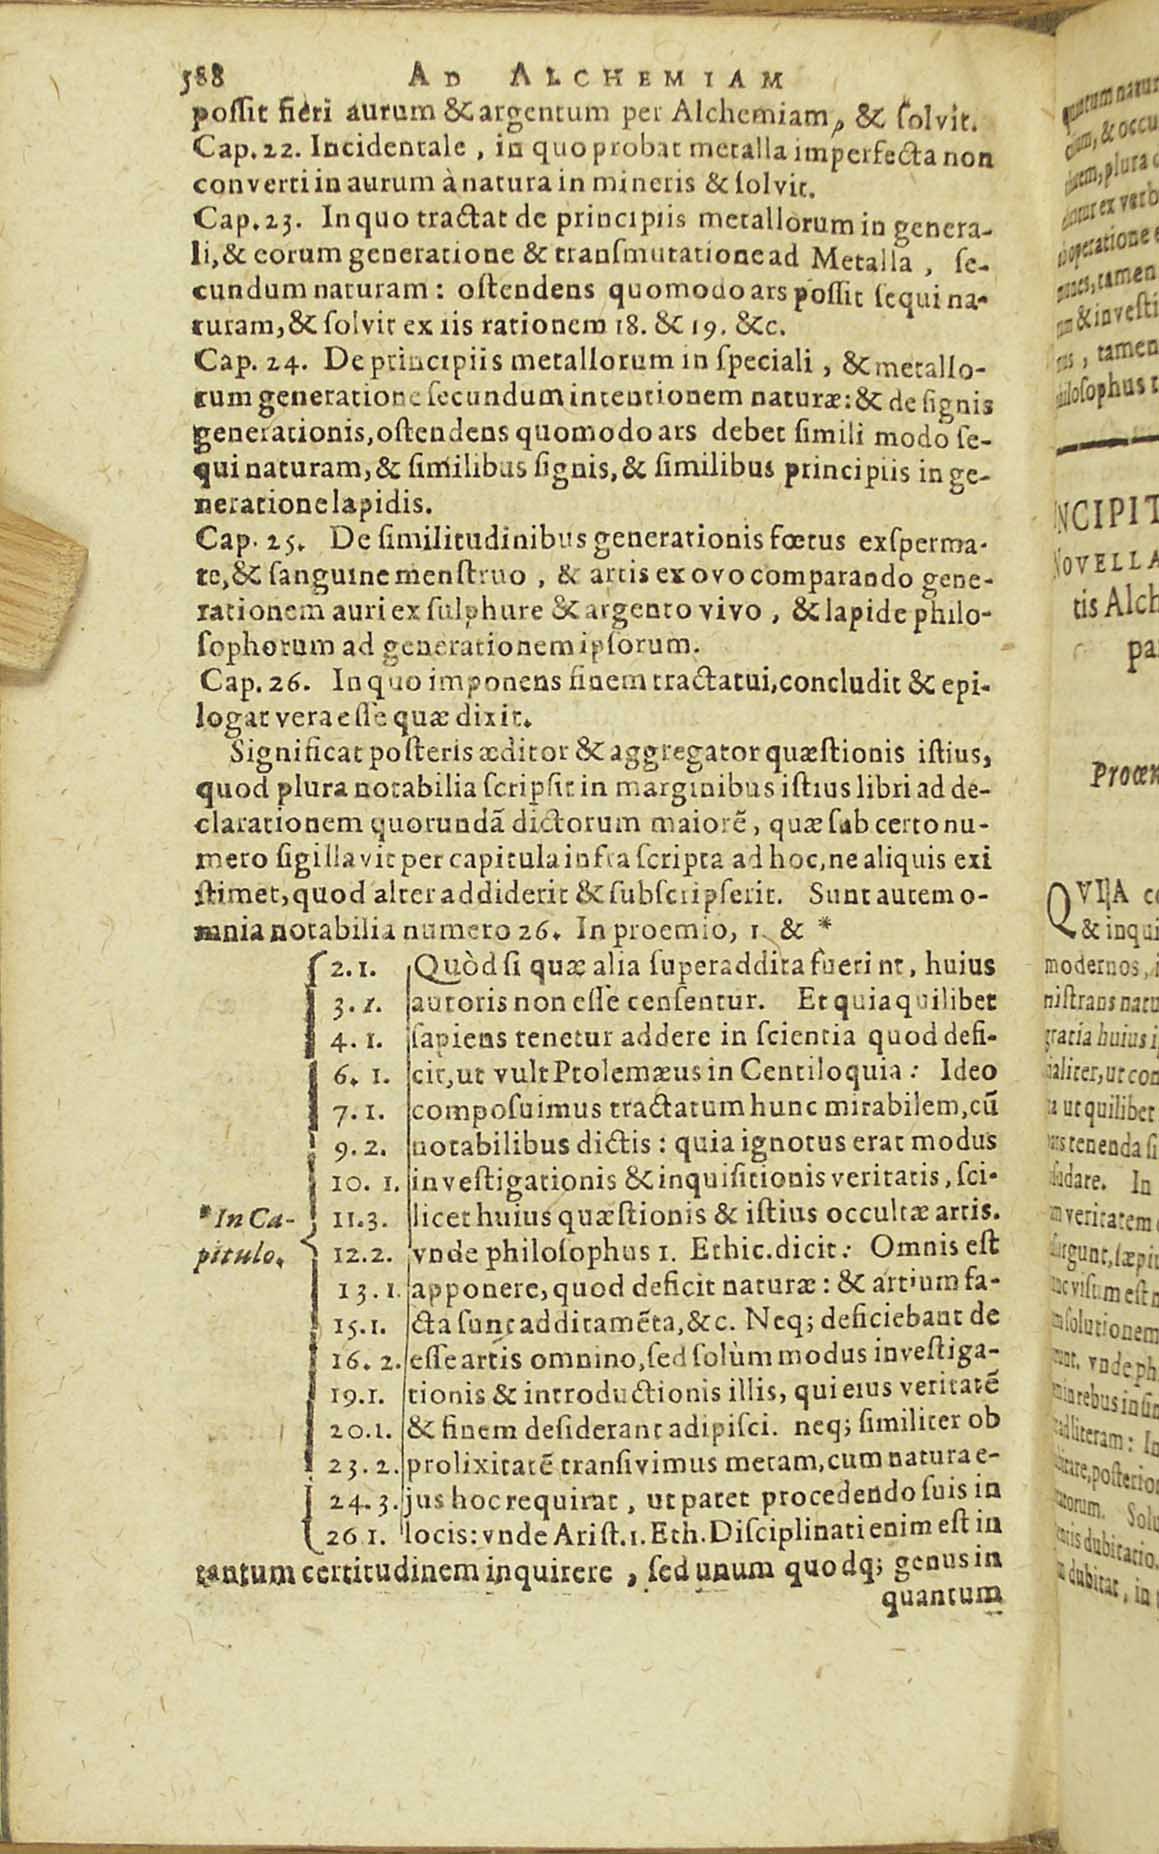 588 AD ALCHEMIAM
poſſit fieri aurum & argentum per Alchemiam, & ſolvit.
Cap. 22. Incidentale, in quo probat metalla imperfecta non
converti in aurum à natura in mineris & ſolvit.
Cap. 23. In quo tractat de principiis metallorum in genera-
li, & eorum generatione & tranſmutatione ad Metalla, ſe-
cundum naturam: oſtendens quomodo ars poſſit ſequi na-
turam, & ſolvit ex iis rationem 18. & 19. &c.
Cap. 24. De principiis metallorum in ſpeciali, & metallo-
rum generatione ſecundum intentionem naturæ: & de ſignis
generationis, oſtendens quomodo ars debet ſimili modo ſe-
qui naturam, & ſimilibus ſignis, & ſimilibus principiis in ge-
neratione lapidis.
Cap. 25. De ſimilitudinibus generationis fœtus ex ſperma-
te, & ſanguine menſtruo, & artis ex ovo comparando gene-
rationem auri ex ſulphure & argento vivo, & lapide philo-
ſophorum ad generationem ipſorum.
Cap. 26. In quo imponens finem tractatui, concludit & epi-
logat vera eſſe quæ dixit.
Significat poſteris æditor & aggregator quæſtionis iſtius,
quod plura notabilia ſcripſit in marginibus iſtius libri ad de-
clarationem quorundã dictorum maiorẽ, quæ ſub certo nu-
mero ſigillavit per capitula infra ſcripta ad hoc, ne aliquis exi
ſtimet, quod alter addiderit & ſubſcripſerit. Sunt autem o-
mnia notabilia numero 26. In proemio, 1. & *
2. 1. Quòd ſi quæ alia ſuperaddita fuerint, huius
3. 1. autoris non eſſe cenſentur. Et quia quilibet
4. 1. ſapiens tenetur addere in ſcientia quod defi-
6. 1. cit, ut vult Ptolemæus in Centiloquia: Ideo
7. 1. compoſuimus tractatum hunc mirabilem, cũ
9. 2. notabilibus dictis: quia ignotus erat modus
10. 1. inveſtigationis & inquiſitionis veritatis, ſci-
*In Ca- 11. 3. licet huius quæſtionis & iſtius occultæ artis.
pitulo. 12. 2. vnde philoſophus 1. Ethic. dicit: Omnis eſt
13. 1. apponere, quod deficit naturæ: & artium fa-
15. 1. cta ſunt additamẽta, &c. Neq; deficiebant de
16. 2. eſſe artis omnino, ſed ſolùm modus inveſtiga-
19. 1. tionis & introductionis illis, qui eius veritatẽ
20. 1. & finem deſiderant adipiſci. neq; ſimiliter ob
23. 2. prolixitatẽ tranſivimus metam, cum natura e-
24. 3. jus hoc requirat, ut patet procedendo ſuis in
26 1. locis: vnde Ariſt. 1. Eth. Diſciplinati enim eſt in
tantum certitudinem inquirere, ſed unum quodq; genus in
quantum
NCIPIT
NOVELLA
tis Alch
QVIA
& inqui
modernos,